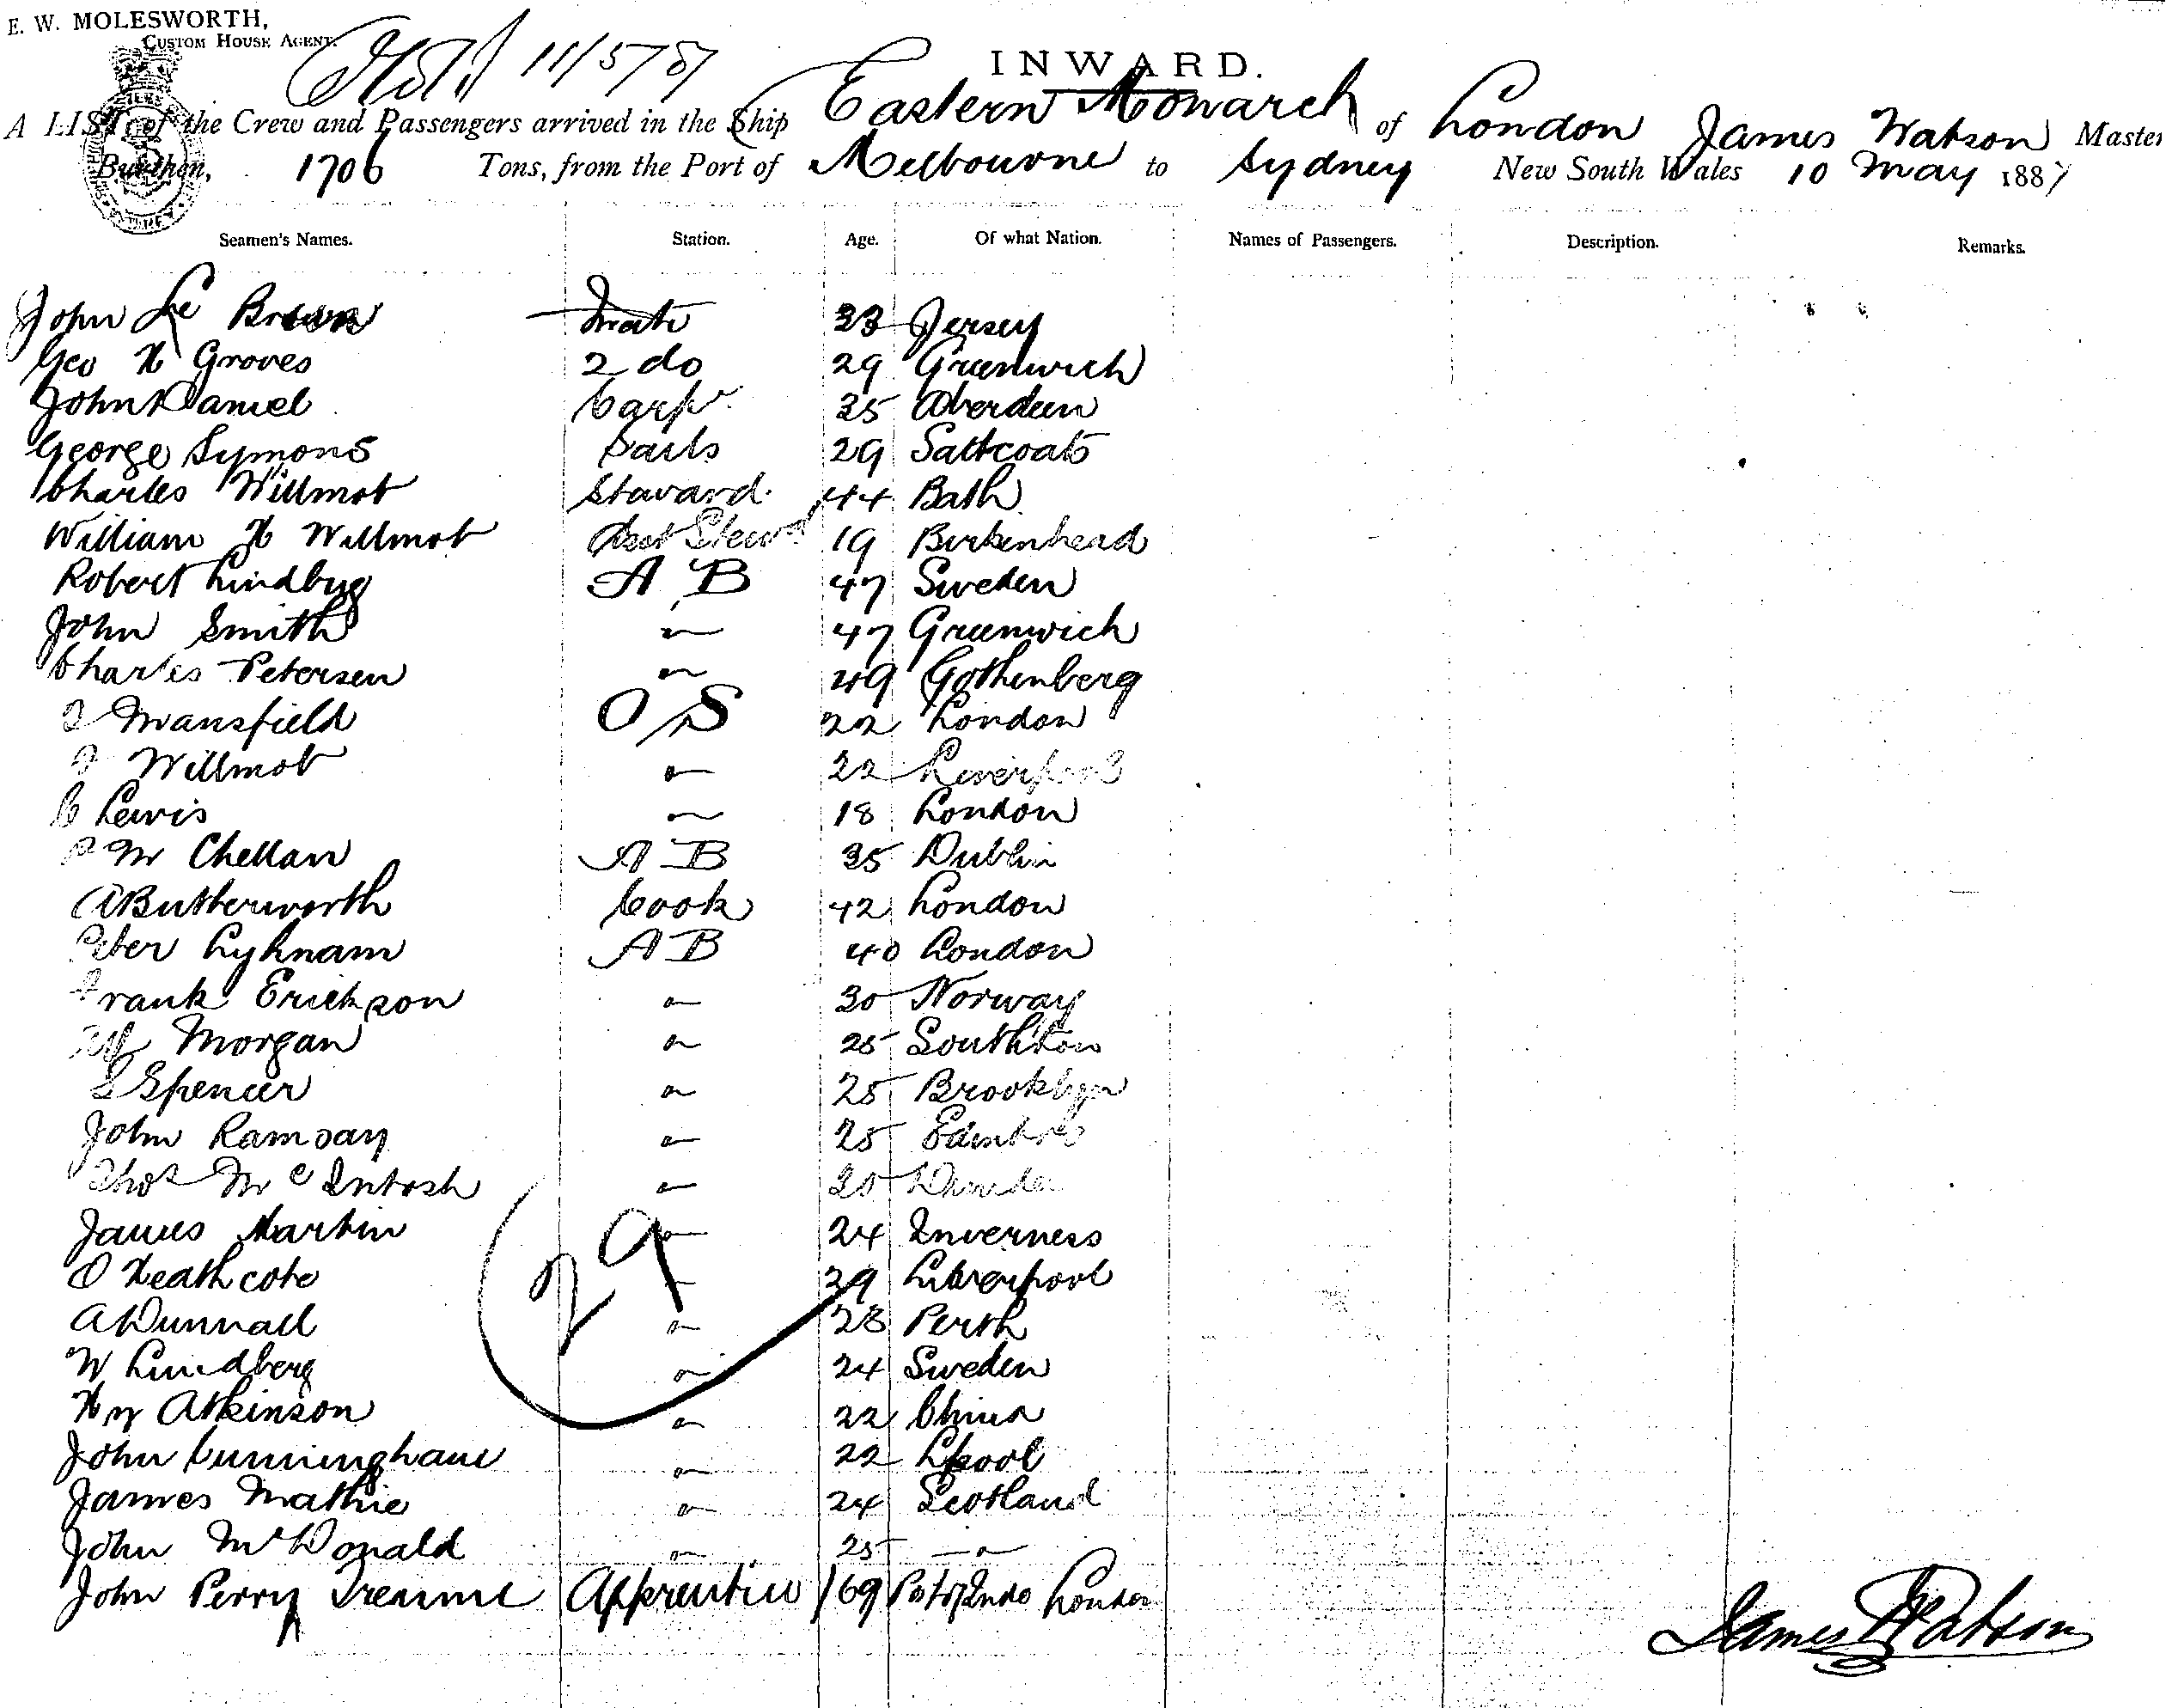 E. W. MOLESWORTH,
CUSTOM HOUSE AGENT.
11/5/87
INWARD.
A LIST of the Crew and Passengers arrived in the Ship Eastern Monarch of London James Watson Master
Burthen, 1706 Tons, from the Port of Melbourne to Sydney New South Wales 10 May 1887
Seamen's Names. Station. Age. Of what Nation. Names of Passengers. Description. Remarks.
John Le Brun Mate 33 Jersey
Geo H Groves 2 do 29 Greenwich
John Daniel Carpr 35 Aberdeen
George Symons Sails 29 Saltcoats
Charles Willmot Steward 44 Bath
William H Willmot Asst Stewd 19 Birkenhead
Robert Lindbug A B 47 Sweden
John Smith " 47 Greenwich
Charles Petersen " 49 Gothenberg
Mansfield O S 22 London
Willmot " 22 Liverpool
C Lewis " 18 London
P Mc Chellan A B 35 Dublin
A Butterworth Cook 42 London
Peter Lyhnam A B 40 London
Frank Erickson " 30 Norway
Morgan " 25 Southton
S Spencer " 25 Brooklyn
John Ramsay " 25 Edinbro
Thos Mc Intosh " 20 Dundee
James Martin " 24 Inverness
O Heathcote " 29 Liverpool
A Dunnall " 28 Perth
W Lindberg " 24 Sweden
Hy Atkinson " 22 China
John Cunningham " 22 Lpool
James Mathie " 24 Scotland
John McDonald " 25 "
John Perry Apprentice 169 London
29
James Watson